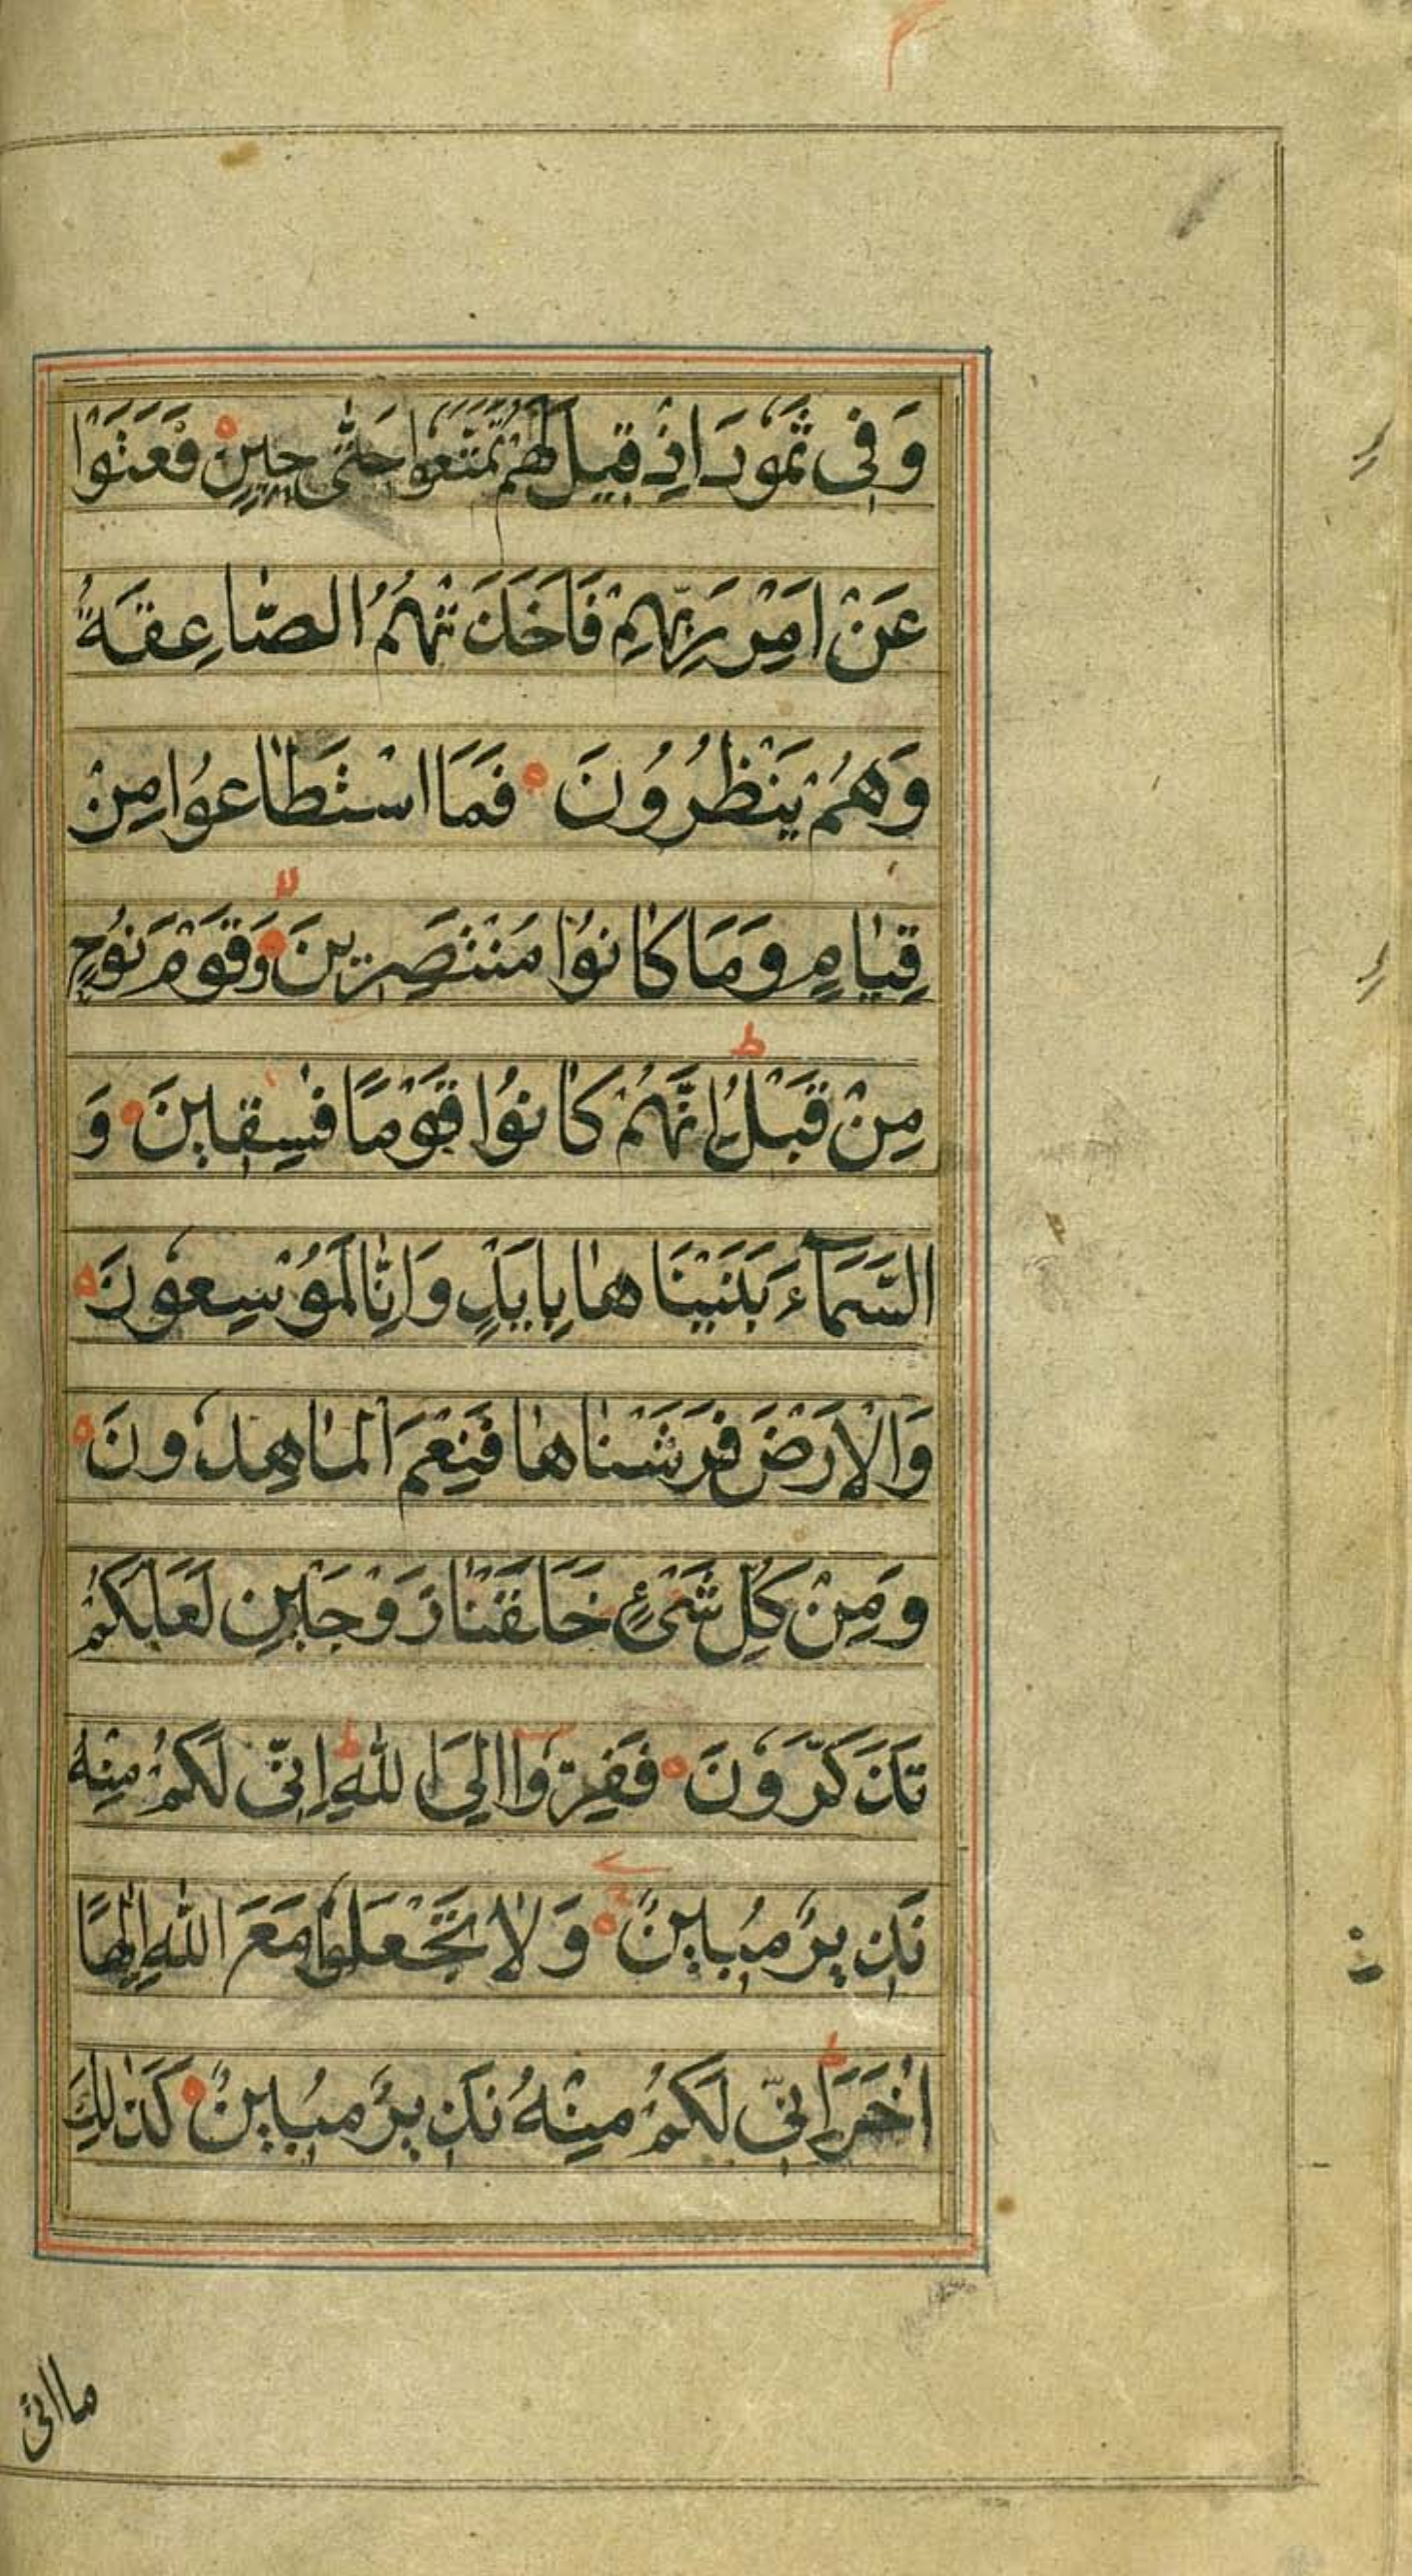 وَفِی ثَمُودَ اِذْ قِیلَ لَهُمْ تَمَتَّعُوا حَتّٰی حِینٍ فَعَتَوْا
عَنْ اَمْرِ رَبِّهِمْ فَاَخَذَتْهُمُ الصّٰاعِقَةُ
وَهُمْ یَنْظُرُونَ فَمَا اسْتَطٰاعُوا مِنْ
قِیٰامٍ وَمَا كٰانُوا مُنْتَصِرِینَ وَقَوْمَ نُوحٍ
مِنْ قَبْلُ اِنَّهُمْ كٰانُوا قَوْمًا فٰسِقِینَ وَ
السَّمَآءَ بَنَیْنَاهٰا بِاَیْدٍ وَاِنّٰا لَمُوْسِعُونَ
وَالْاَرْضَ فَرَشْنٰاهٰا فَنِعْمَ الْمٰاهِدُونَ
وَمِنْ كُلِّ شَیْءٍ خَلَقْنٰا زَوْجَیْنِ لَعَلَّكُمْ
تَذَكَّرُونَ فَفِرُّوا اِلَی اللّٰهِ اِنِّی لَكُمْ مِنْهُ
نَذِیرٌ مُبِینٌ وَلٰا تَجْعَلُوا مَعَ اللّٰهِ اِلٰهًا
اٰخَرَ اِنِّی لَكُمْ مِنْهُ نَذِیرٌ مُبِینٌ كَذٰلِكَ
ما اتی